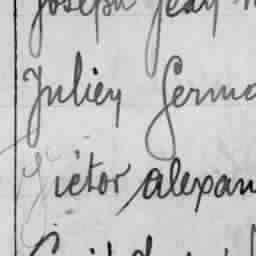 Joseph Jean
Julien Germa
Victor alexan